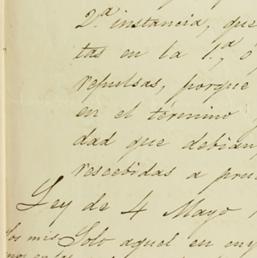 2.ª instancia, que
tas en la 1.ª, ó
repulsas, porque
en el término
dad que debian
rescebidas a prue
Ley de 4 Mayo
los mis Solo aquel en cuy